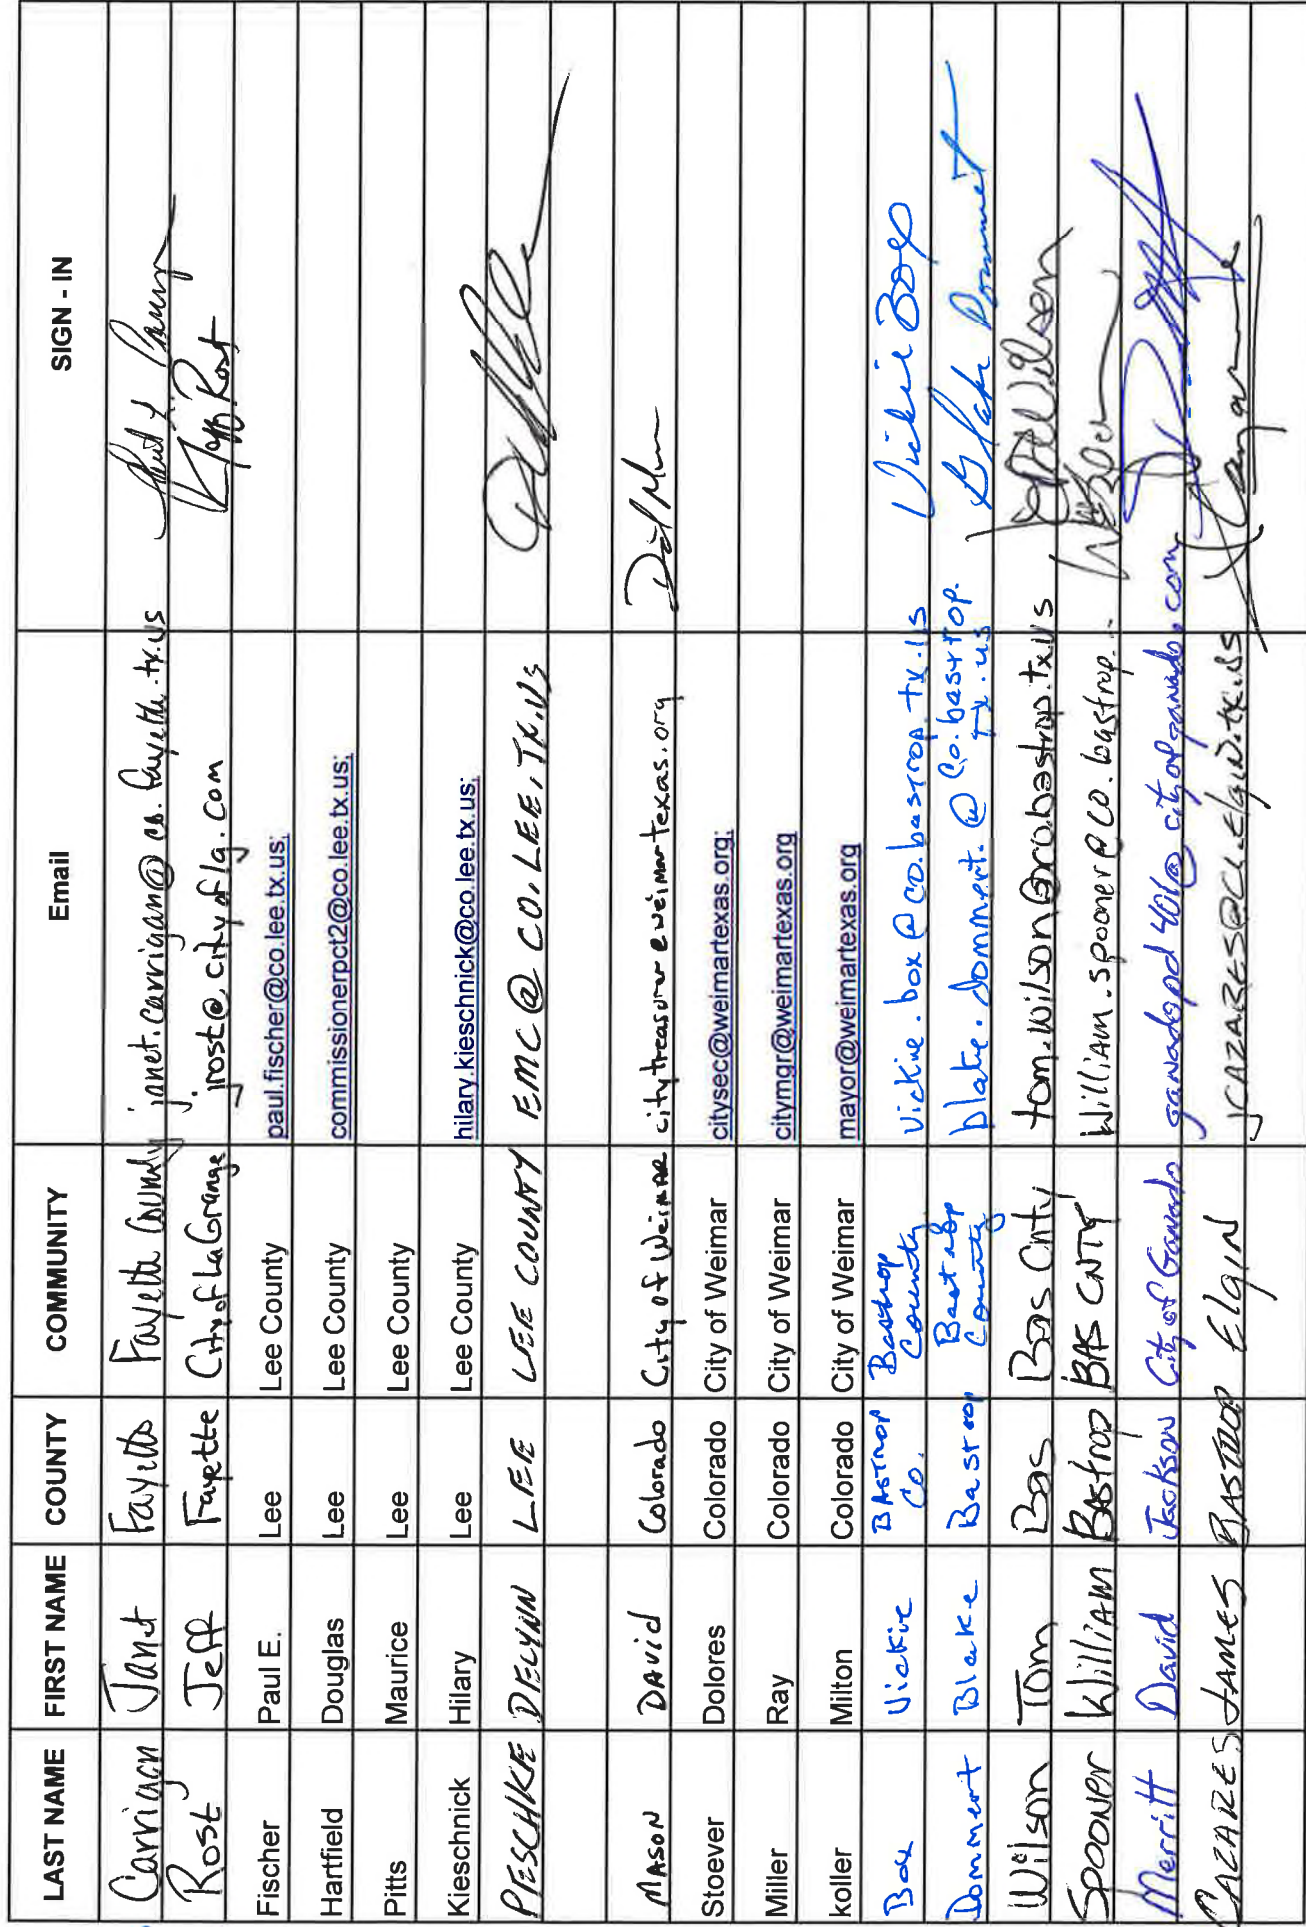 LAST NAME FIRST NAME COUNTY COMMUNITY Email SIGN - IN
Carrigan Janet Fayette Fayette County janet.carrigan@co.fayette.tx.us
Rost Jeff Fayette City of La Grange jrost@cityoflg.com Jeff Rost
Fischer Paul E. Lee Lee County paul.fischer@co.lee.tx.us;
Hartfield Douglas Lee Lee County commissionerpct2@co.lee.tx.us;
Pitts Maurice Lee Lee County
Kieschnick Hilary Lee Lee County hilary.kieschnick@co.lee.tx.us;
PESCHKE DELYNN LEE LEE COUNTY EMC@CO.LEE.TX.US
MASON DAVID Colorado City of Weimar citytreasurer@weimartexas.org
Stoever Dolores Colorado City of Weimar citysec@weimartexas.org;
Miller Ray Colorado City of Weimar citymgr@weimartexas.org
koller Milton Colorado City of Weimar mayor@weimartexas.org
Box Vickie BASTROP Co. Bastrop County vickie.box@co.bastrop.tx.us Vickie Box
Dommert Blake Bastrop Bastrop County blake.dommert.@co.bastrop.tx.us Blake Dommert
Wilson Tom Bas Bas Cnty tom.wilson@co.bastrop.tx.us Wilson
Spooner William Bastrop BAS CNTY William.spooner@co.bastrop...
Merritt David Jackson City of Ganado ganadopd401@cityofganado.com
CAZARES JAMES BASTROP Elgin JCAZARES@CI.ElgiN.tx.us